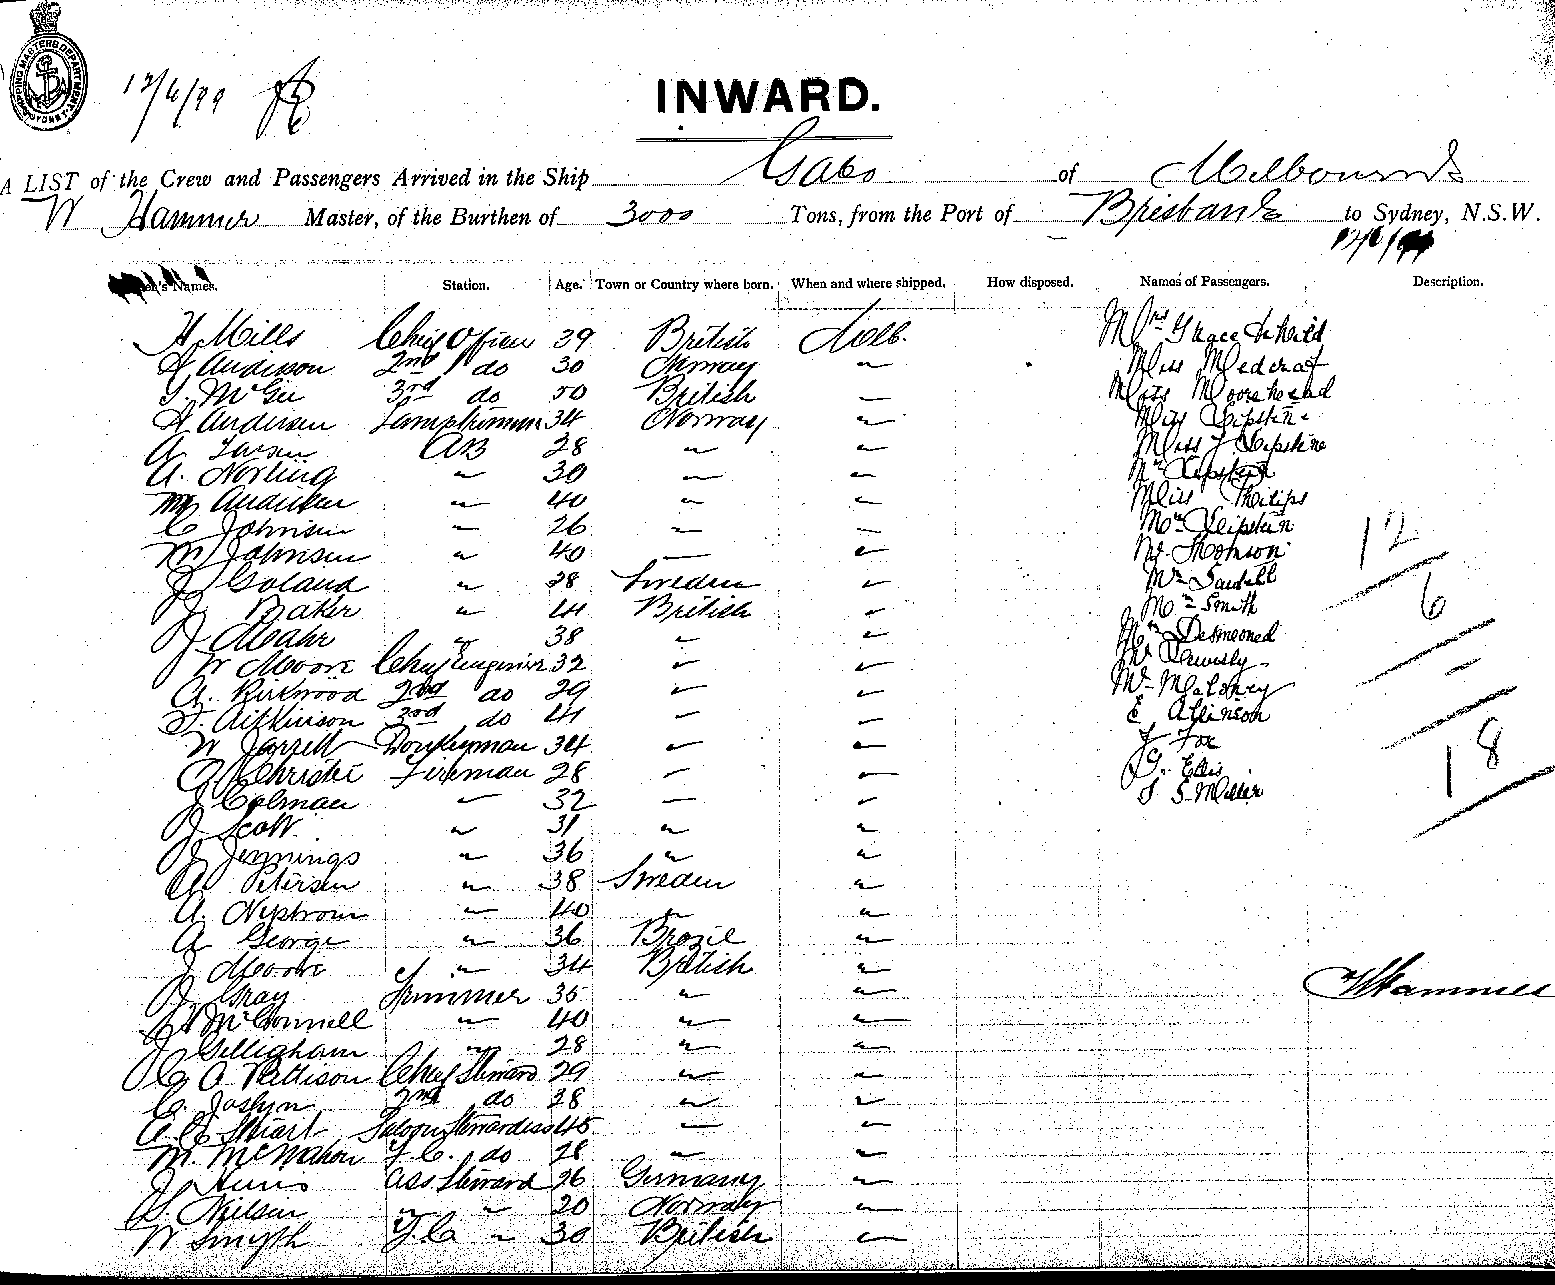 SHIPPING MASTERS DEPARTMENT SYDNEY
12/6/99
INWARD.
A LIST of the Crew and Passengers Arrived in the Ship Gabo of Melbourne
W Hammer Master, of the Burthen of 3000 Tons, from the Port of Brisbane to Sydney, N.S.W.
Names. Station. Age. Town or Country where born. When and where shipped. How disposed. Names of Passengers. Description.
H Mills Chief Officer 39 British Melb. Mrs Grace & Child
Anderson 2nd do 30 Norway " Miss Medcraf
McGee 3rd do 50 British " Miss Moorehead
A Andersen Lamptrimmer 34 Norway " Miss Lipstine
A Larsen AB 28 " " Miss J Lipstine
A. Norling " 30 " " Mr Lipstein
M Andersen " 40 " " Miss Philips
C Johnsen " 26 " " Mr Lipstein
M Johnsen " 40 " " Mr Thomson
J Goland " 28 Sweden " Mr
J Baker " 41 British " Mr Smith
J Meahr " 38 " " Mr Desmoned
W Moore Chief Engineer 32 " " Mr
A. Kirkwood 2nd do 29 " " Mr Maloney
Aitkinson 3rd do 41 " " E Atkinson
W Jarrett Donkeyman 34 " " J Fox
Christie Fireman 28 " " G. Ellis
J Colman " 32 " " S Miller
J Scott " 31 " "
J Jennings " 36 " "
A Petersen " 38 Sweden "
A. Nystrom " 40 " "
A George " 36 Brazil "
J Moore " 34 British "
J Gray Trimmer 35 " "
McConnell " 40 " "
J Gilligham " 28 " "
C A Pattison Chief Steward 29 " "
C. Joslyn 2nd do 28 " "
A. E Stuart Saloon Stewardess 45 " "
M. McMahon F.C. do 28 " "
J Ass Steward 26 Germany "
Nielsen " " 20 Norway "
W Smyth F.C " 30 British "
12
6
-
18
W Hammer